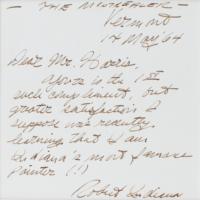 — THE
Vermont
14 May '64
Dear Mr. Harris,
Yours is the 1st
such compliment, but
greater satisfaction I
suppose was recently
learning that I am
Indiana's most famous
painter (!)
Robert Indiana